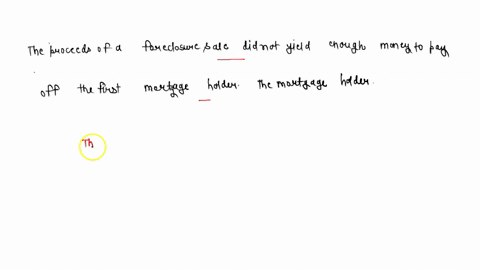 The proceeds of a foreclosure sale did not yield enough money to pay
off the first mortgage holder. The mortgage holder.
Th